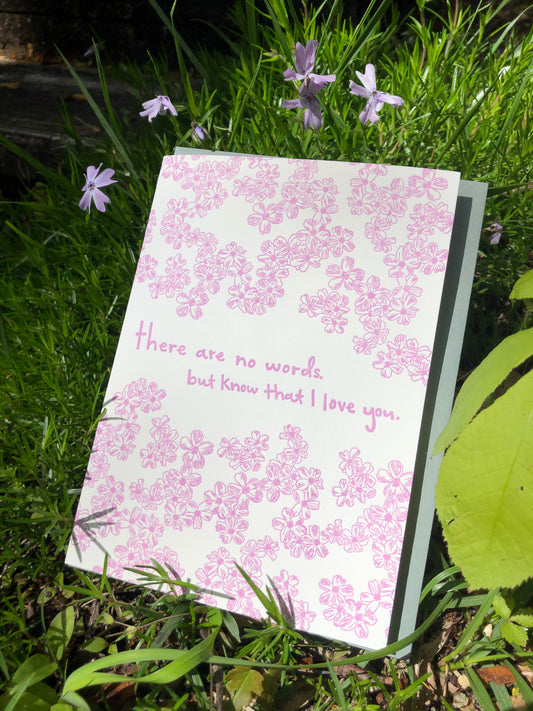 there are no words.
but know that I love you.